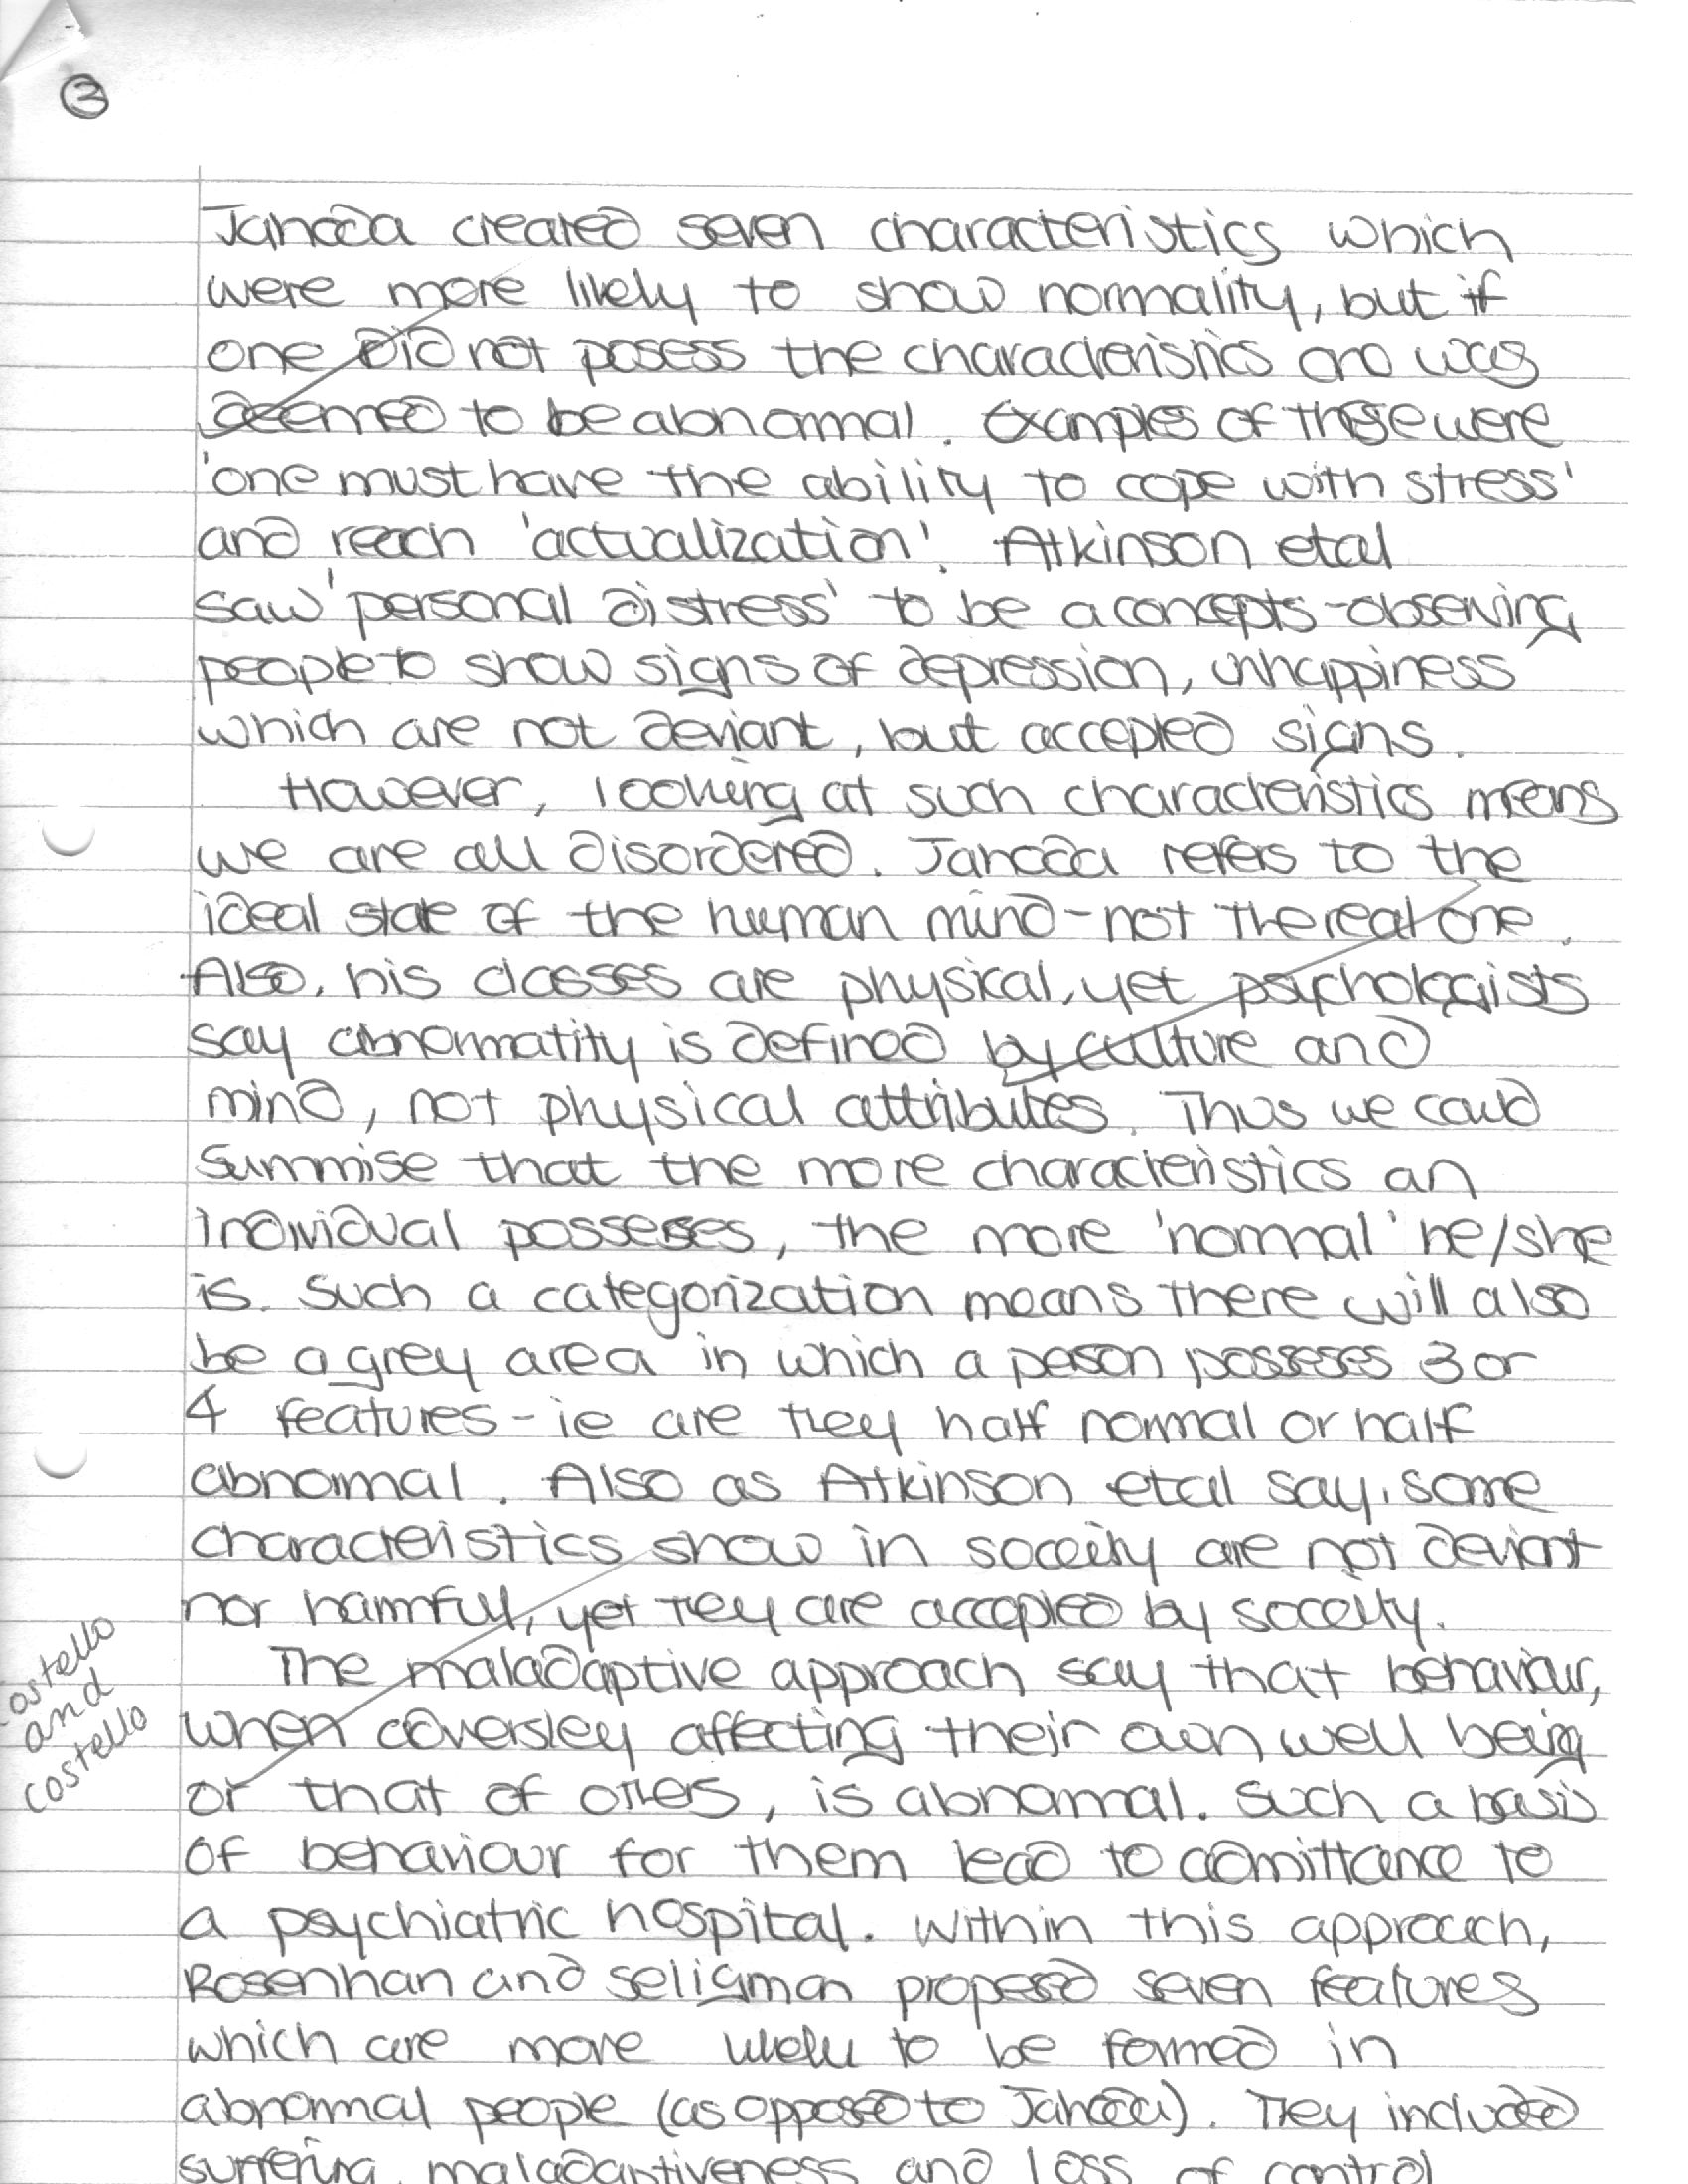 3
Jahoda created seven characteristics which
were more likely to show normality, but if
one did not posess the characteristics and was
deemed to be abnormal. Examples of these were
'one must have the ability to cope with stress'
and reach 'actualization'. Atkinson etal
saw 'personal distress' to be a concepts - observing
people to show signs of depression, unhappiness
which are not deviant, but accepted signs.
However, looking at such characteristics means
we are all disordered. Jahoda refers to the
ideal state of the human mind - not the real one.
Also, his classes are physical, yet psychologists
say abnormatity is defined by culture and
mind, not physical attributes. Thus we could
summise that the more characteristics an
individual posseses, the more 'normal' he/she
is. Such a categorization means there will also
be a grey area in which a person posseses 3 or
4 features - ie are they half normal or half
abnormal. Also as Atkinson etal say, some
characteristics show in soceity are not deviant
nor harmful, yet they are accepted by soceity.
The maladaptive approach say that behaviour,
when adversley affecting their own well being
or that of others, is abnormal. Such a basis
of behaviour for them lead to admittance to
a psychiatric hospital. Within this approach,
Rosenhan and Seligman proposed seven features
which are more likely to be formed in
abnormal people (as opposed to Jahoda). They included
suffering, maladaptiveness and loss of control
ostello
and
costello